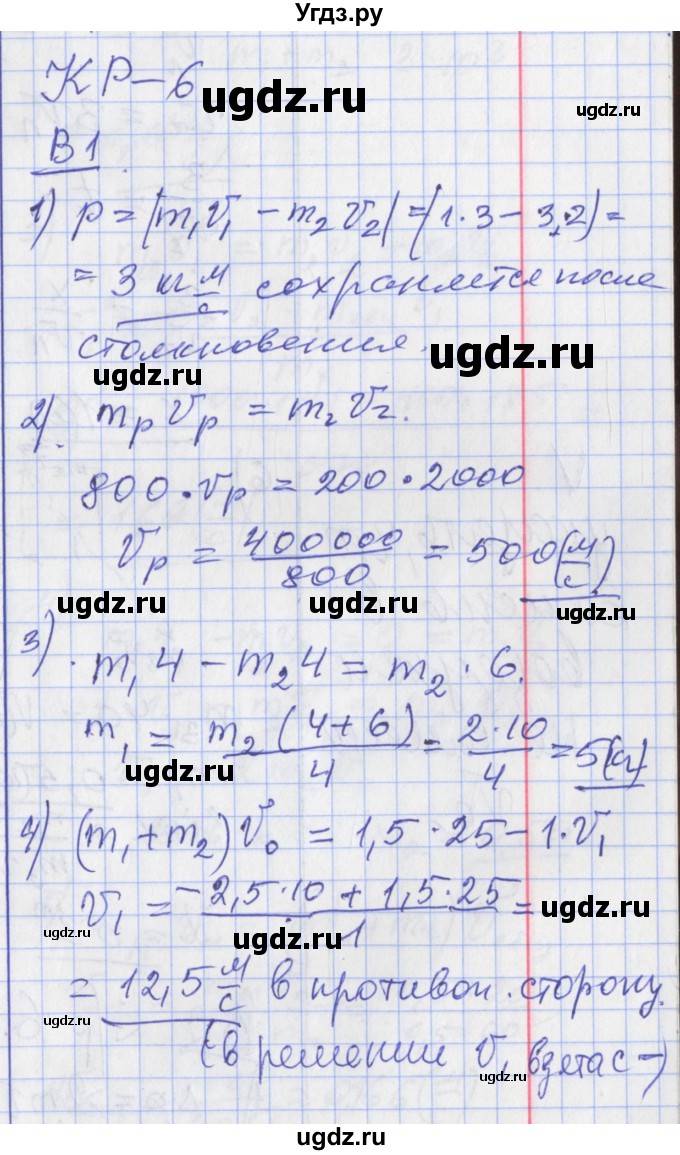 Угдз.ру
КР–6
ugdz.ru
В1
1) p = |m₁v₁ – m₂v₂| = |1·3 – 3·2| =
= 3 кг м/с сохраняется после
столкновения.
ugdz.ru
ugdz.ru
2). m_p v_p = m_г v_г.
800·v_p = 200·2000
v_p = 400000/800 = 500 (м/с)
ugdz.ru
ugdz.ru
ugdz.ru
3) m₁4 – m₂4 = m₂·6.
m₁ = m₂(4+6)/4 = 2·10/4 = 5(кг)
ugdz.ru
ugdz.ru
4) (m₁+m₂)v₀ = 1,5·25 – 1·v₁
v₁ = –2,5·10 + 1,5·25/1 =
ugdz.ru
ugdz.ru
ugdz.ru
= 12,5 м/с в противоп. сторону
ugdz.ru
(в решении v₁ взята с –)
ugdz.ru
ugdz.ru